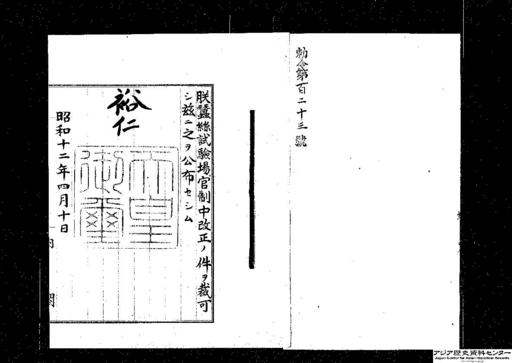 勅令第百二十三號
朕蠶絲試驗場官制中改正ノ件ヲ裁可
シ茲ニ之ヲ公布セシム
裕仁
天皇御璽
昭和十二年四月十日
内閣
アジア歴史資料センター
Japan Center for Asian Historical Records